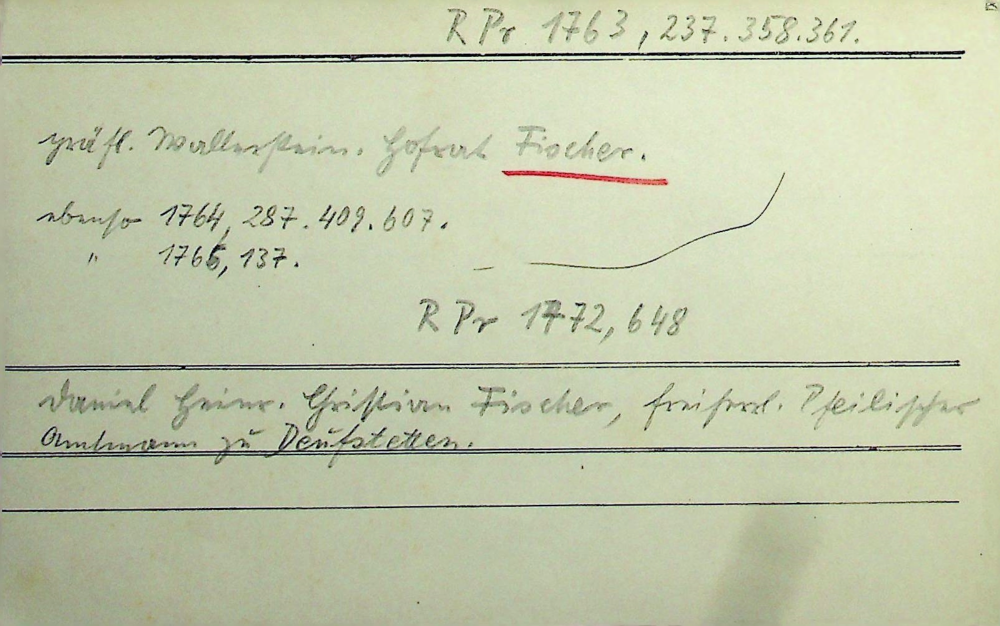 R Pr 1763, 237. 358. 361.
gräfl. Wallerstein. Hofrat Fischer.
ebenso 1764, 287. 409. 607.
" 1765, 137.
R Pr 1772, 648
Daniel Heinr. Christian Fischer, freiherrl. Pfeilischer
Amtmann zu Deufstetten.